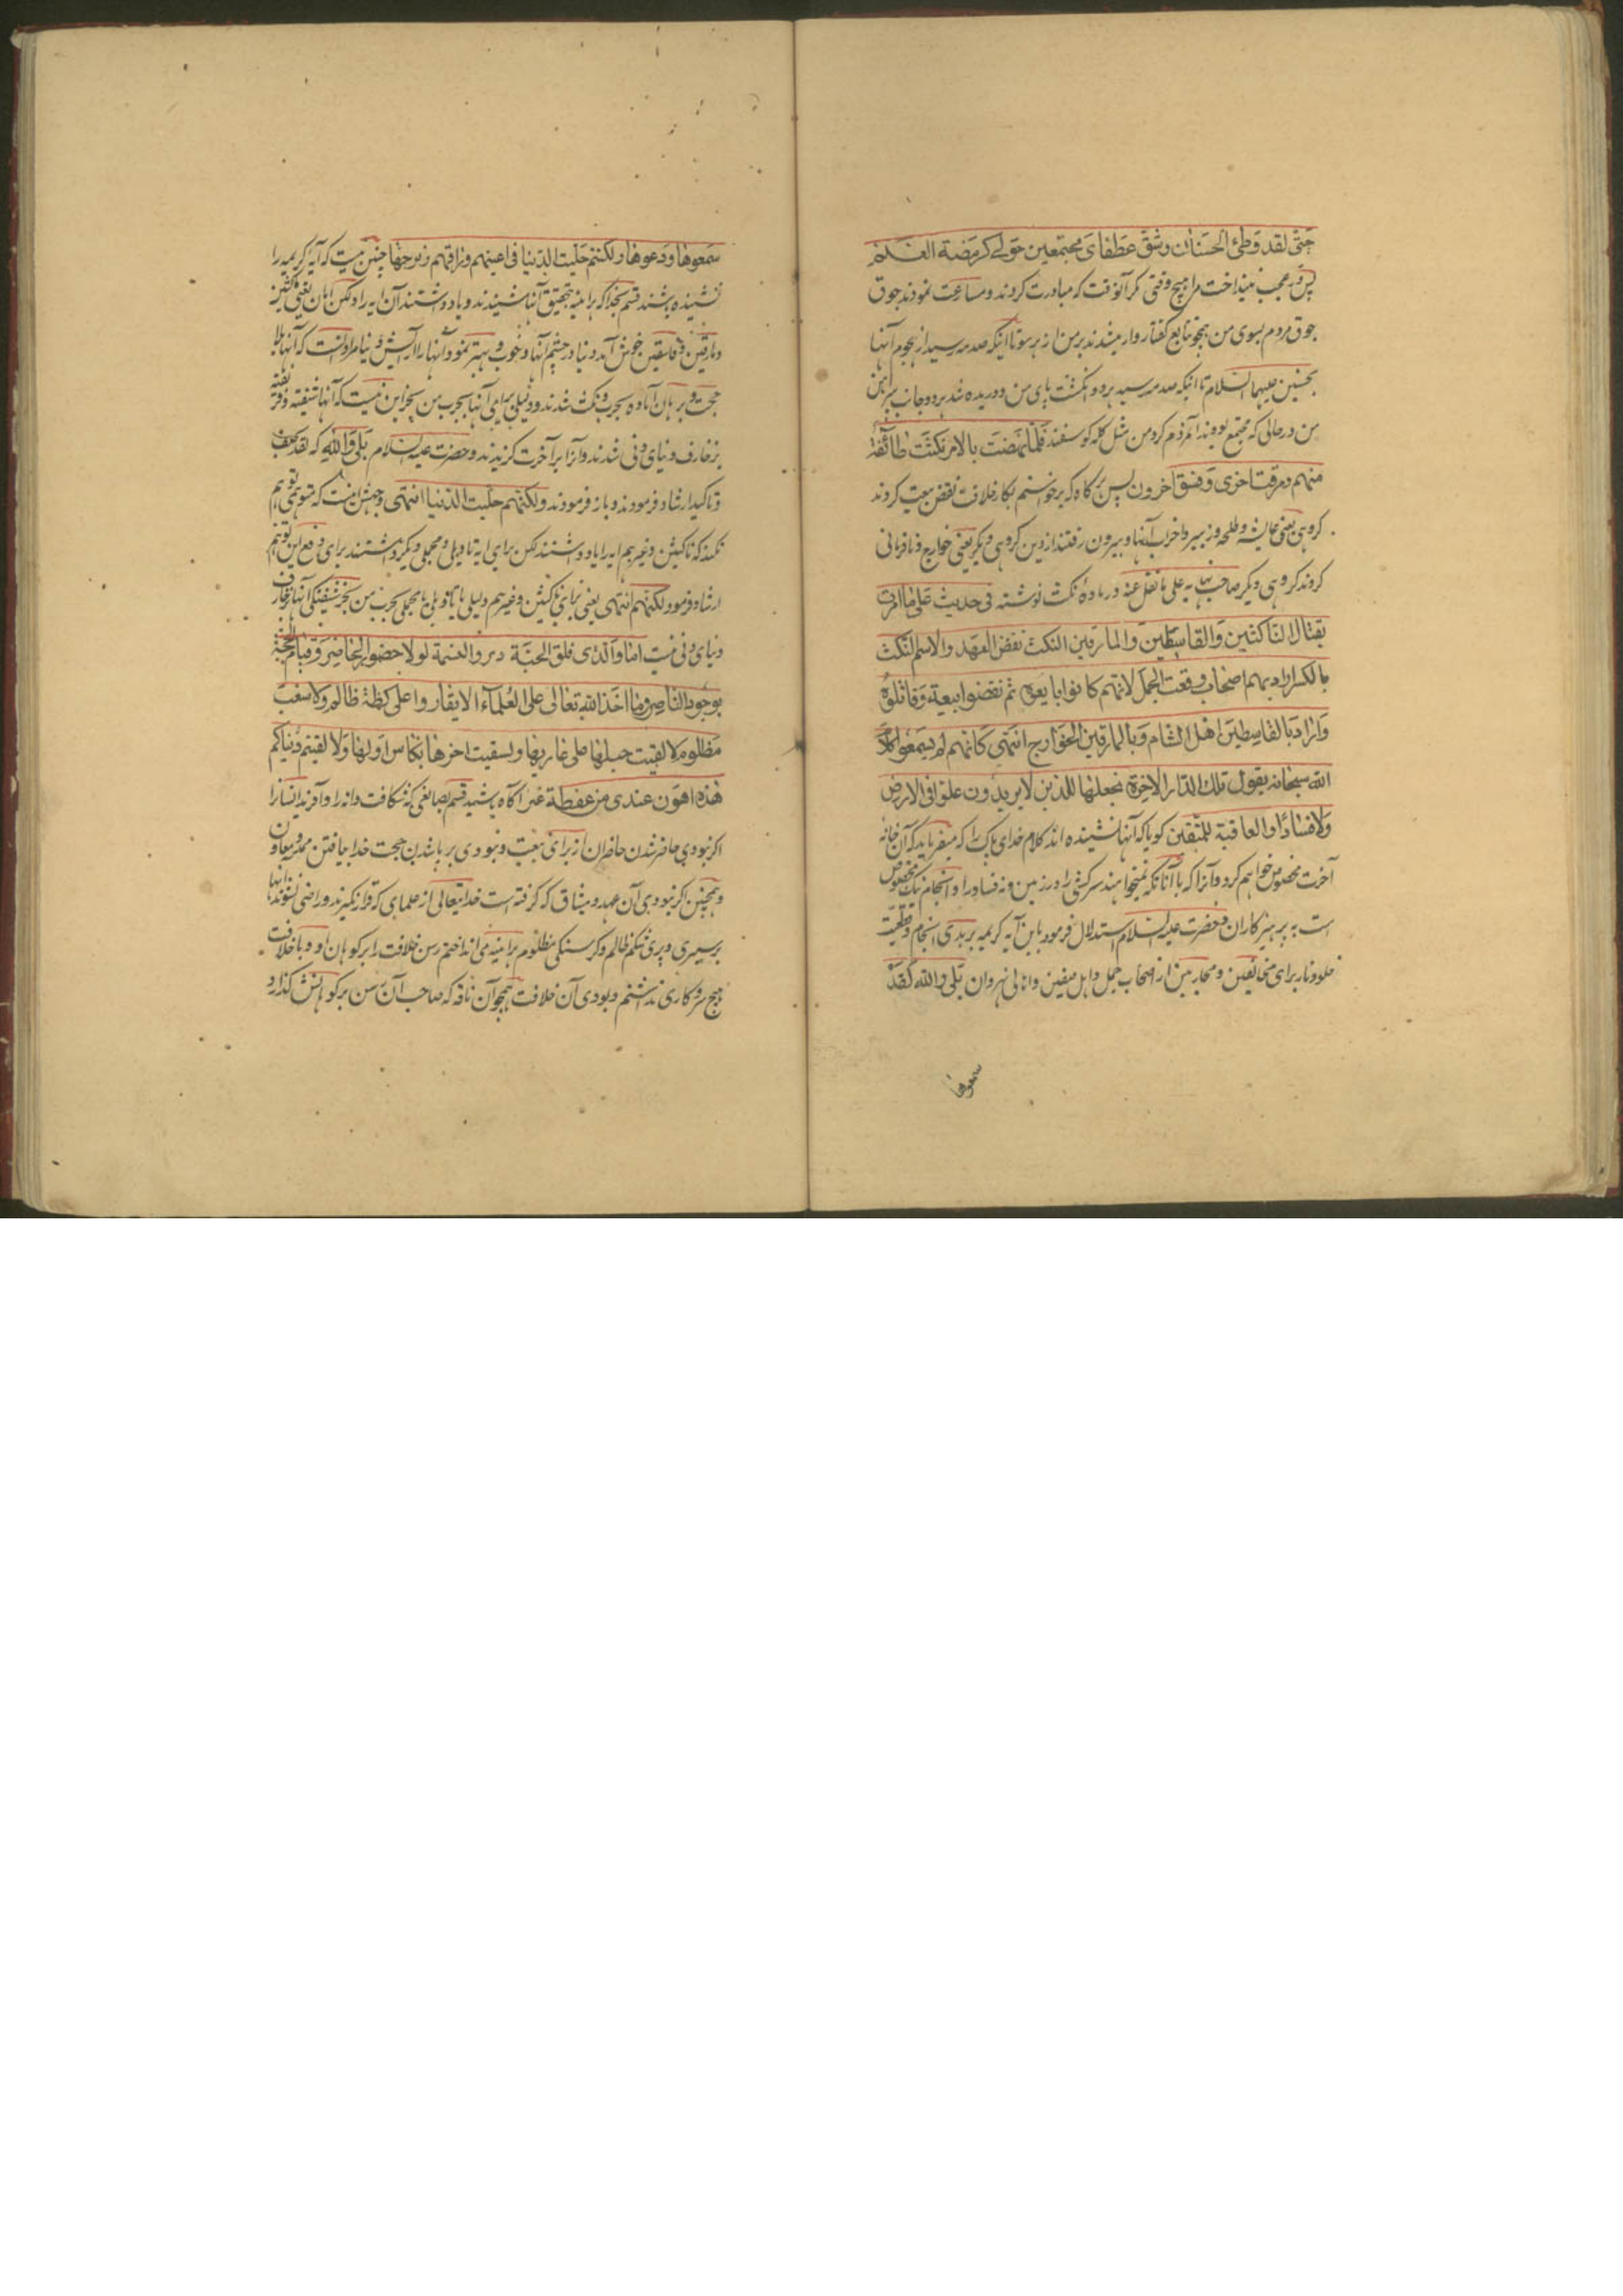 حتی لقد وطئ الحسنان وشق عطفای مجتمعین حولی کربضة الغنم
پس در عجب نینداخت مرا هیچ وقتی مگر آنوقت که مبادرت کردند و مسارعت نمودند جوق
جوق مردم بسوی من همچو تتابع کفتار وار میشدند بر من از هر سو تا اینکه صدمه رسید از هجوم آنها
بحسنین علیهما السلام تا اینکه صدمه رسید بر دو انکشت پای من و دریده شد بر دو جانب پیراهن
من در حالی که مجتمع بودند آنمردم کرد من مثل کله کوسفند فلما نهضت بالامر نکثت طائفة
منهم ومرقت اخری وفسق اخرون پس هر کاه که برخواستم بکار خلافت نقض بیعت کردند
کروهی یعنی عایشه و طلحه و زبیر و احزاب آنها و بیرون رفتند از دین کروهی دیکر یعنی خوارج و نافرمانی
کردند کروهی دیکر صاحب نهایه علی ما نقل عنه در ماده نکث نوشته فی حدیث علی ما امرت
بقتال الناکثین والقاسطین والمارقین النکث نقض العهد والاسم النکث
بالکسر اراد بهم اصحاب وقعت الجمل لانهم کانوا بایعوه ثم نقضوا بیعته وقاتلوه
واراد بالقاسطین اهل الشام وبالمارقین الخوارج انتهی کانهم لم یسمعوا کلام
الله سبحانه یقول تلك الدار الاخرة نجعلها للذین لایریدون علوا فی الارض
ولا فسادا والعاقبة للمتقین کویا که آنها نشنیده اند کلام خدای پاک را که میفرماید که آن خانه
آخرت مخصوص خواهم کرد و آنرا که با آنانکه نمیخواهند سرکشی را در زمین و نه فساد را و انجام نیک مخصوص
است به پرهیزکاران و حضرت علیه السلام استدلال فرمود باین آیه کریمه بر بدی انجام و قطعیت
خلود نار برای مخالفین و محاربین از اصحاب جمل و اهل صفین و اهالی نهروان بلی والله لقد
سمعوها
سمعوها ودعوها ولکنهم حلیت الدنیا فی اعینهم وراقهم زبرجها چنین نیست که آیه کریمه را
نشنیده باشند قسم بخدا که هر اینه بتحقیق آنها شنیدند و یاد داشتند آن ایه را ولکن اهان یعنی ناکثین
ومارقین و قاسقین خوش آمد دنیا در چشم آنها و خوب و بهتر نمود آنها را آرایش دنیا مراد آنست که آنها بلا
حجت و برهان آماده بحرب و نکث شدند و دلیلی برای آنها بحرب من بجز این نیست که آنها شیفته و فریفته
بزخارف دنیای دنی شدند و آنرا بر آخرت کزیدند و حضرت علیه السلام بلی والله که لقد بعف
و تاکید ارشاد فرمودند و باز فرمودند ولکنهم حلیت الدنیا انتهی وجهش اینست که متوهمی توهم
نکند که ناکثین و غیرهم ایه را یاد داشتند لکن برای ایه تاویلی و محملی دیکر داشتند برای دفع این توهم
ارشاد فرمود لکنهم انتهی یعنی برای ناکثین و غیرهم دلیلی یا تاویلی یا محملی بحرب من بجز شیفتکی آنها بزخارف
دنیای دنی نیست اما والذی فلق الحبة وبرء النسمة لولا حضور الحاضر وقیام الحجة
بوجود الناصر وما اخذ الله تعالی علی العلماء الا یقاروا علی کظة ظالم ولا سغب
مظلوم لالقیت حبلها علی غاربها ولسقیت اخرها بکاس اولها ولا لفیتم دنیاکم
هذه اهون عندی من عفطة عنز آکاه باشید قسم بصانعی که شکافت دانه را و آفرید انسانرا
اکر نبودی حاضر شدن حاضران از برای بیعت و نبودی بر پا شدن حجت خدا بیافتن ممد و معاون
و همچنین اکر نبودی آن عهد و میثاق که کرفته است خدایتعالی از علمای که قرار نکیرند و راضی نشوند آنها
بر سیری و پری شکم ظالم و کرسنکی مظلوم هراینه می انداختم رسن خلافت را بر کوهان او و با خلافت
هیچ سر و کاری نداشتم و بودی آن خلافت همچو آن ناقه که صاحب آن رسن بر کوهانش کذارد